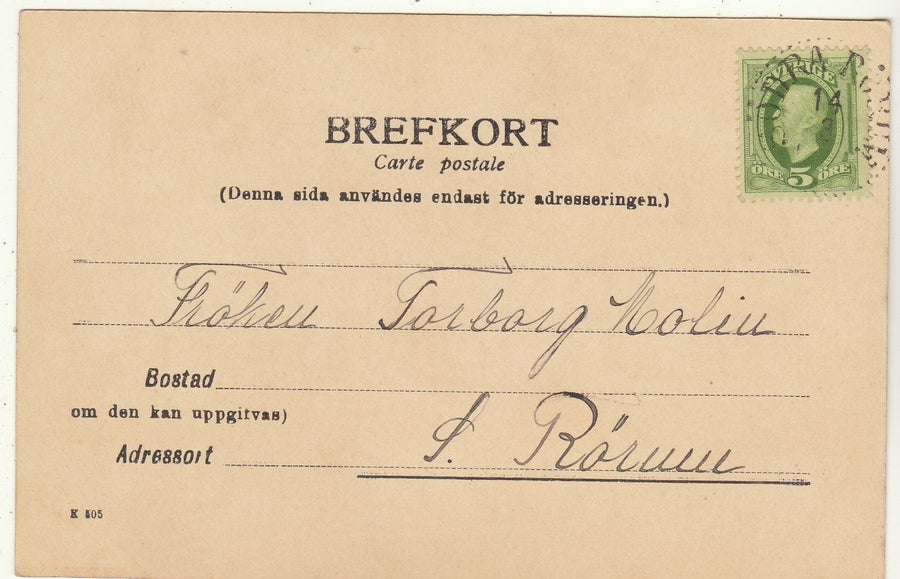 BREFKORT
Carte postale
(Denna sida användes endast för adresseringen.)
SVERIGE
14
ÖRE 5 ÖRE
Fröken Torborg Molin
Bostad
om den kan uppgifvas)
Adressort
S. Rörum
K 505